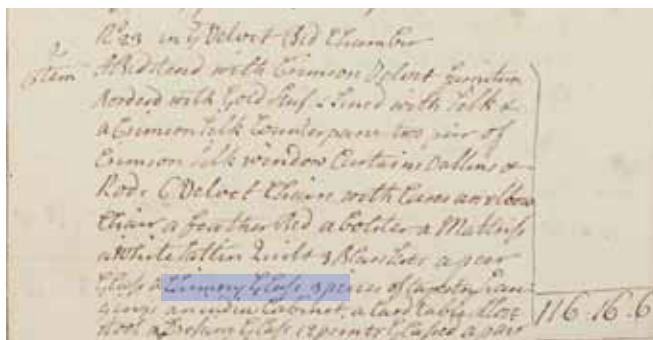 No 23 in ye Velvet Bed Chamber
Item
A Bedstead with Crimson Velvet furniture
borderd with Gold Stuf & Lined with Silk &
a Crimson Silk Counterpane two pair of
Crimson Silk window Curtains Vallins &
Rods 6 Velvet Chairs with Cases an Elbow
Chair a feather Bed a bolster a Mattriss
a White Sattin Quilt 3 Blankets a peer
Glass a Chimney Glass 3 pieces of tapestry Han
gings an india Cabinet, a Card table
Stool a Dressing Glass 12 prints Glased a pair
116.16.6